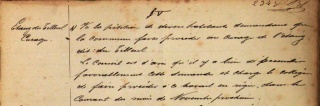 Etang du Tilleul
Curage
Vu la pétition de divers habitants demandant que
la commune fasse procéder au curage de l'étang
dit: du Tilleul.
Le Conseil est d'avis qu'il y a lieu de prendre
favorablement cette demande et charge le collège
de faire procéder à ce travail en régie, dans le
Courant du mois de Novembre prochain.